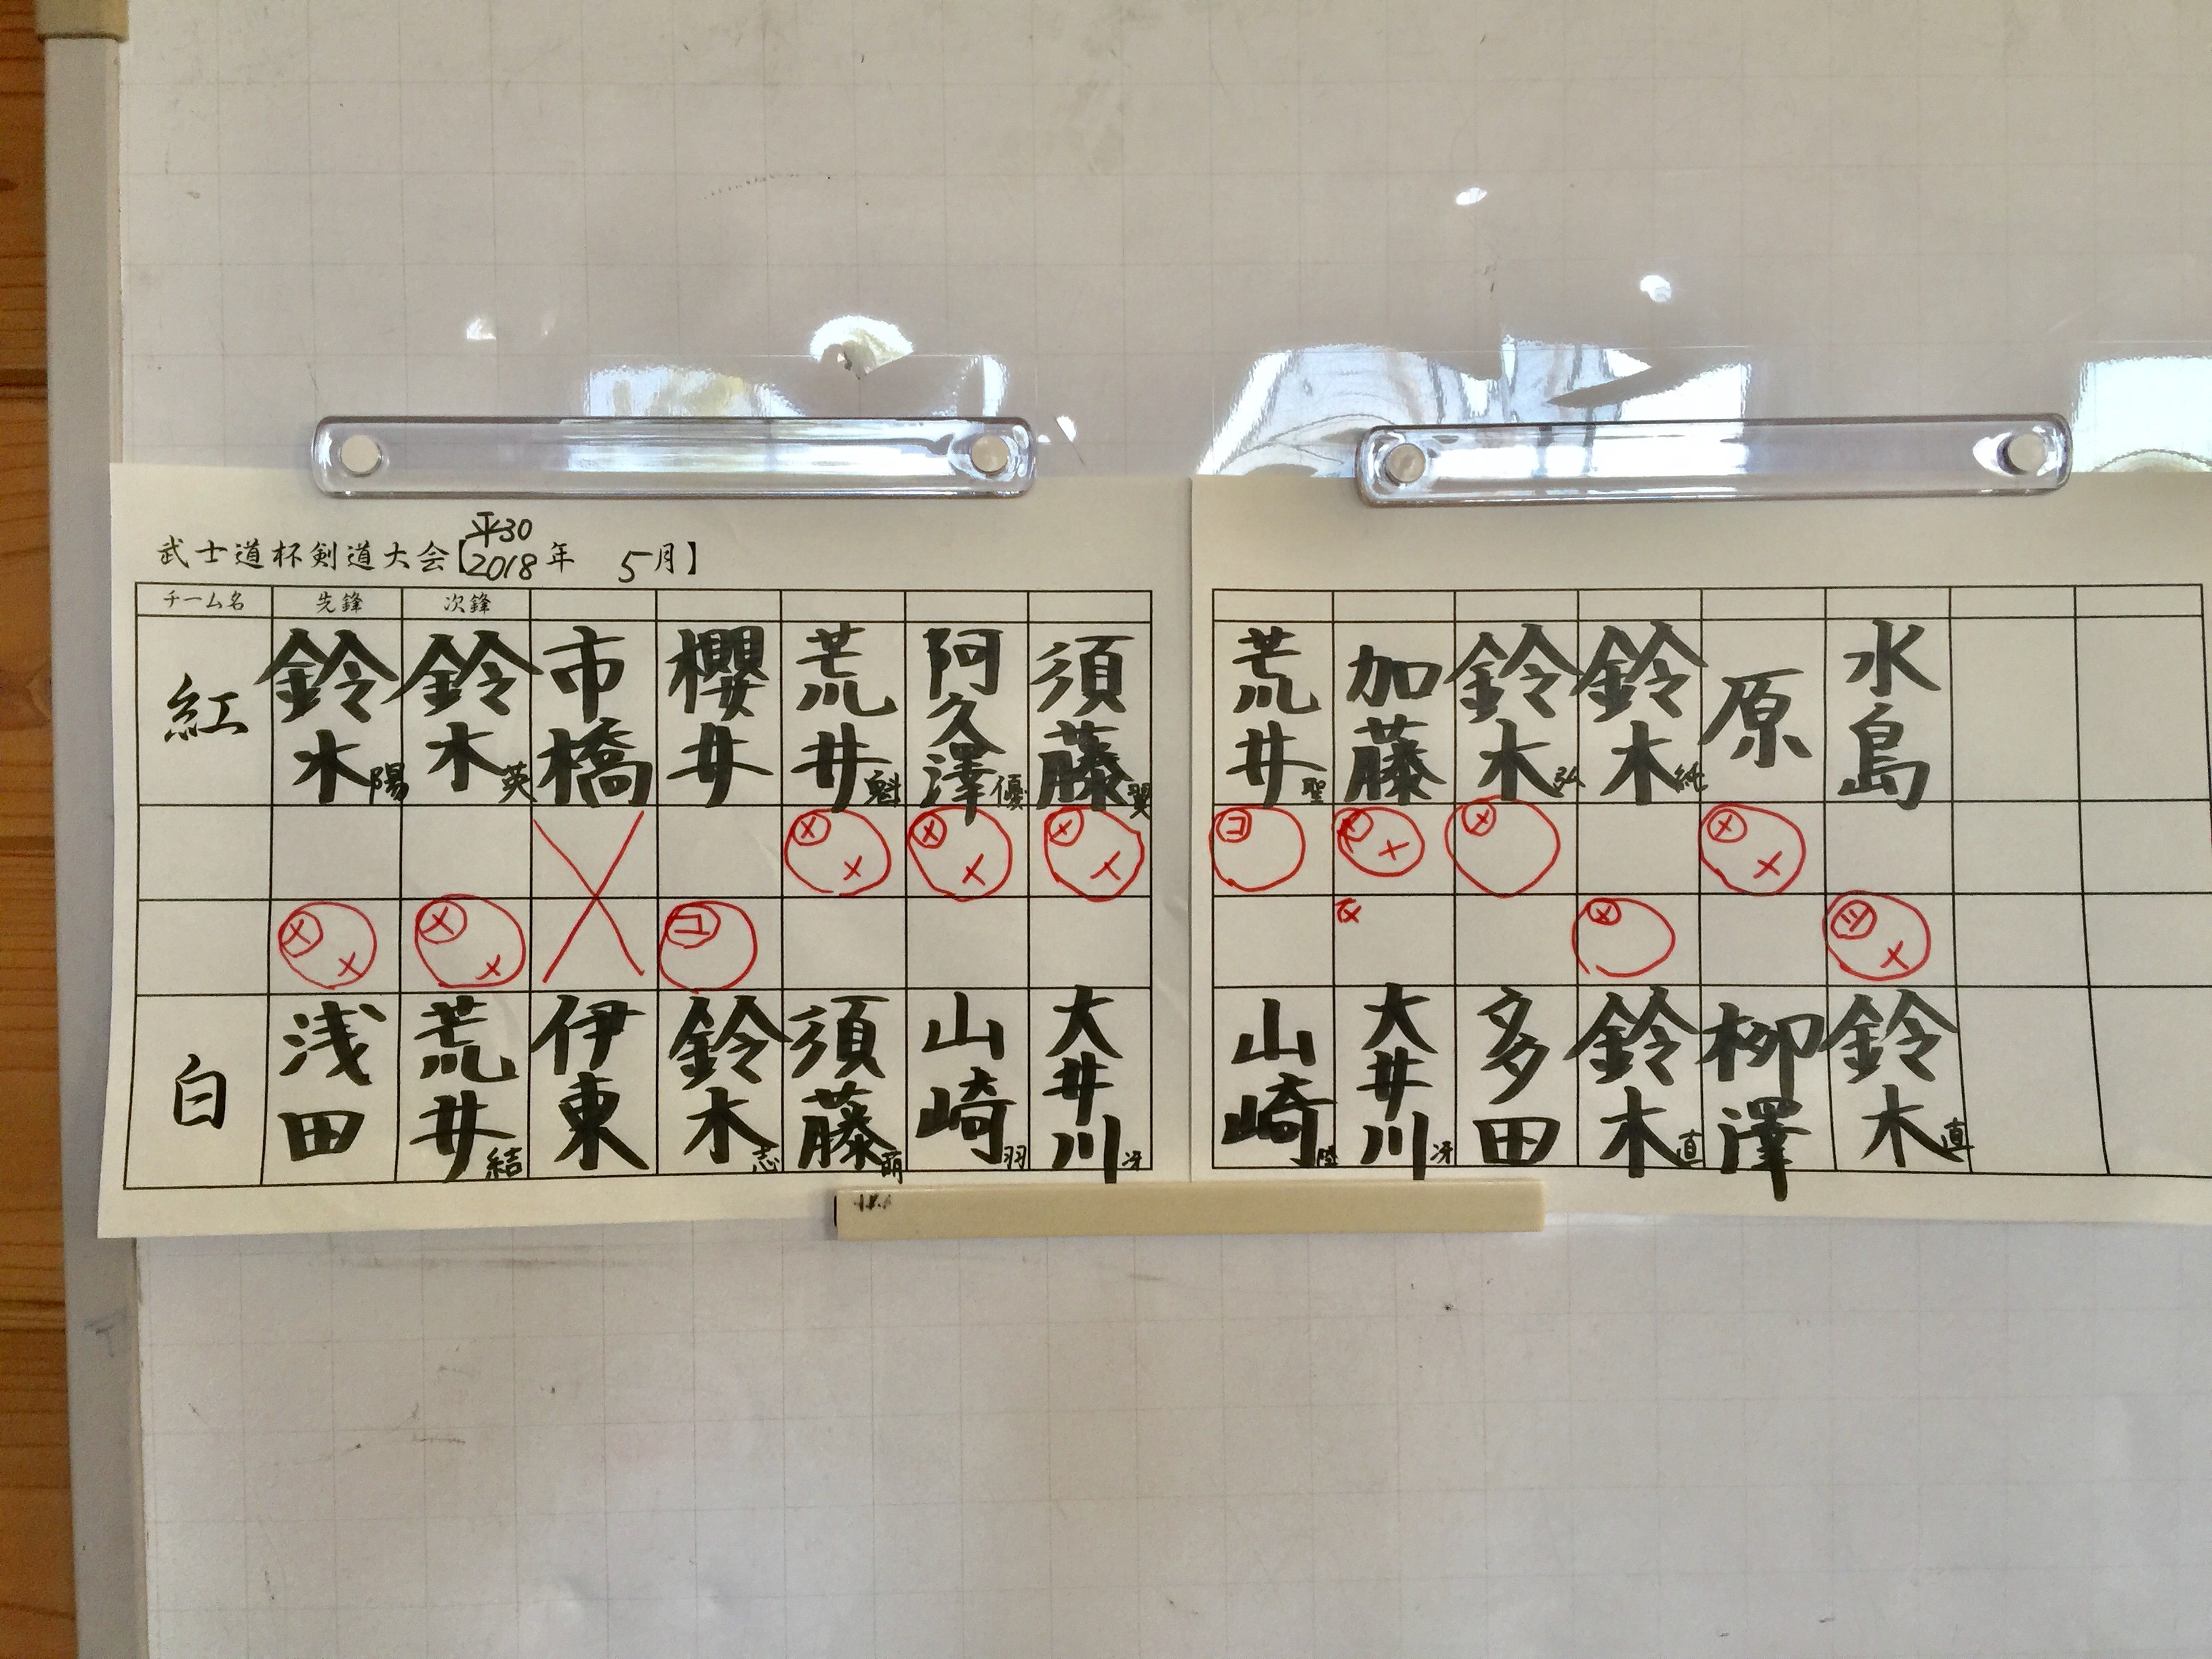 武士道杯剣道大会【2018年 5月】
平30
チーム名 先鋒 次鋒
紅 鈴木陽 鈴木英 市橋 櫻井 荒井魁 阿久澤優 須藤翼 荒井聖 加藤 鈴木弘 鈴木純 原 水島
メメ メメ メメ コ メ メ メメ
メメ メメ コ メ メ ツメ
白 浅田 荒井結 伊東 鈴木志 須藤萌 山崎羽 大井川冴 山崎陸 大井川冴 多田 鈴木直 柳澤 鈴木直